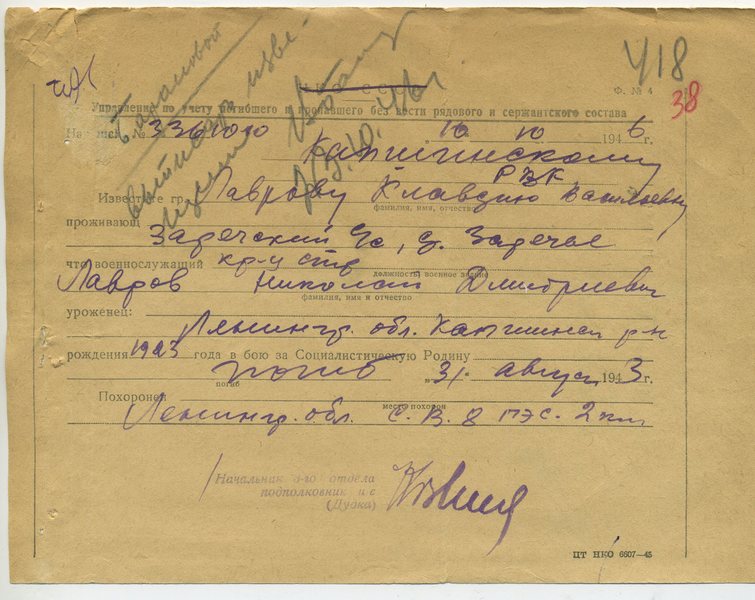 418
Ф. № 4
38
Управление по учету погибшего и пропавшего без вести рядового и сержантского состава
№ 3361010 „10 10 1946 г.
Капшинскому
РВК
Известите гр. Лаврову Клавдию Васильевну
фамилия, имя, отчество
проживающ
Заречский с/с, д. Заречье
что военнослужащий кр-ц стр
должность, военное звание
Лавров Николай Дмитриевич
фамилия, имя и отчество
уроженец:
Ленингр. обл. Капшинск р-н
рождения 1923 года в бою за Социалистическую Родину
погиб 31. август 1943 г.
погиб
Похоронен
место похорон
Ленингр. обл. С. В. 8 ГЭС. 2 км
Начальник 3-го отдела
подполковник и/с
(Дудка)
ЦТ НКО 6607—45